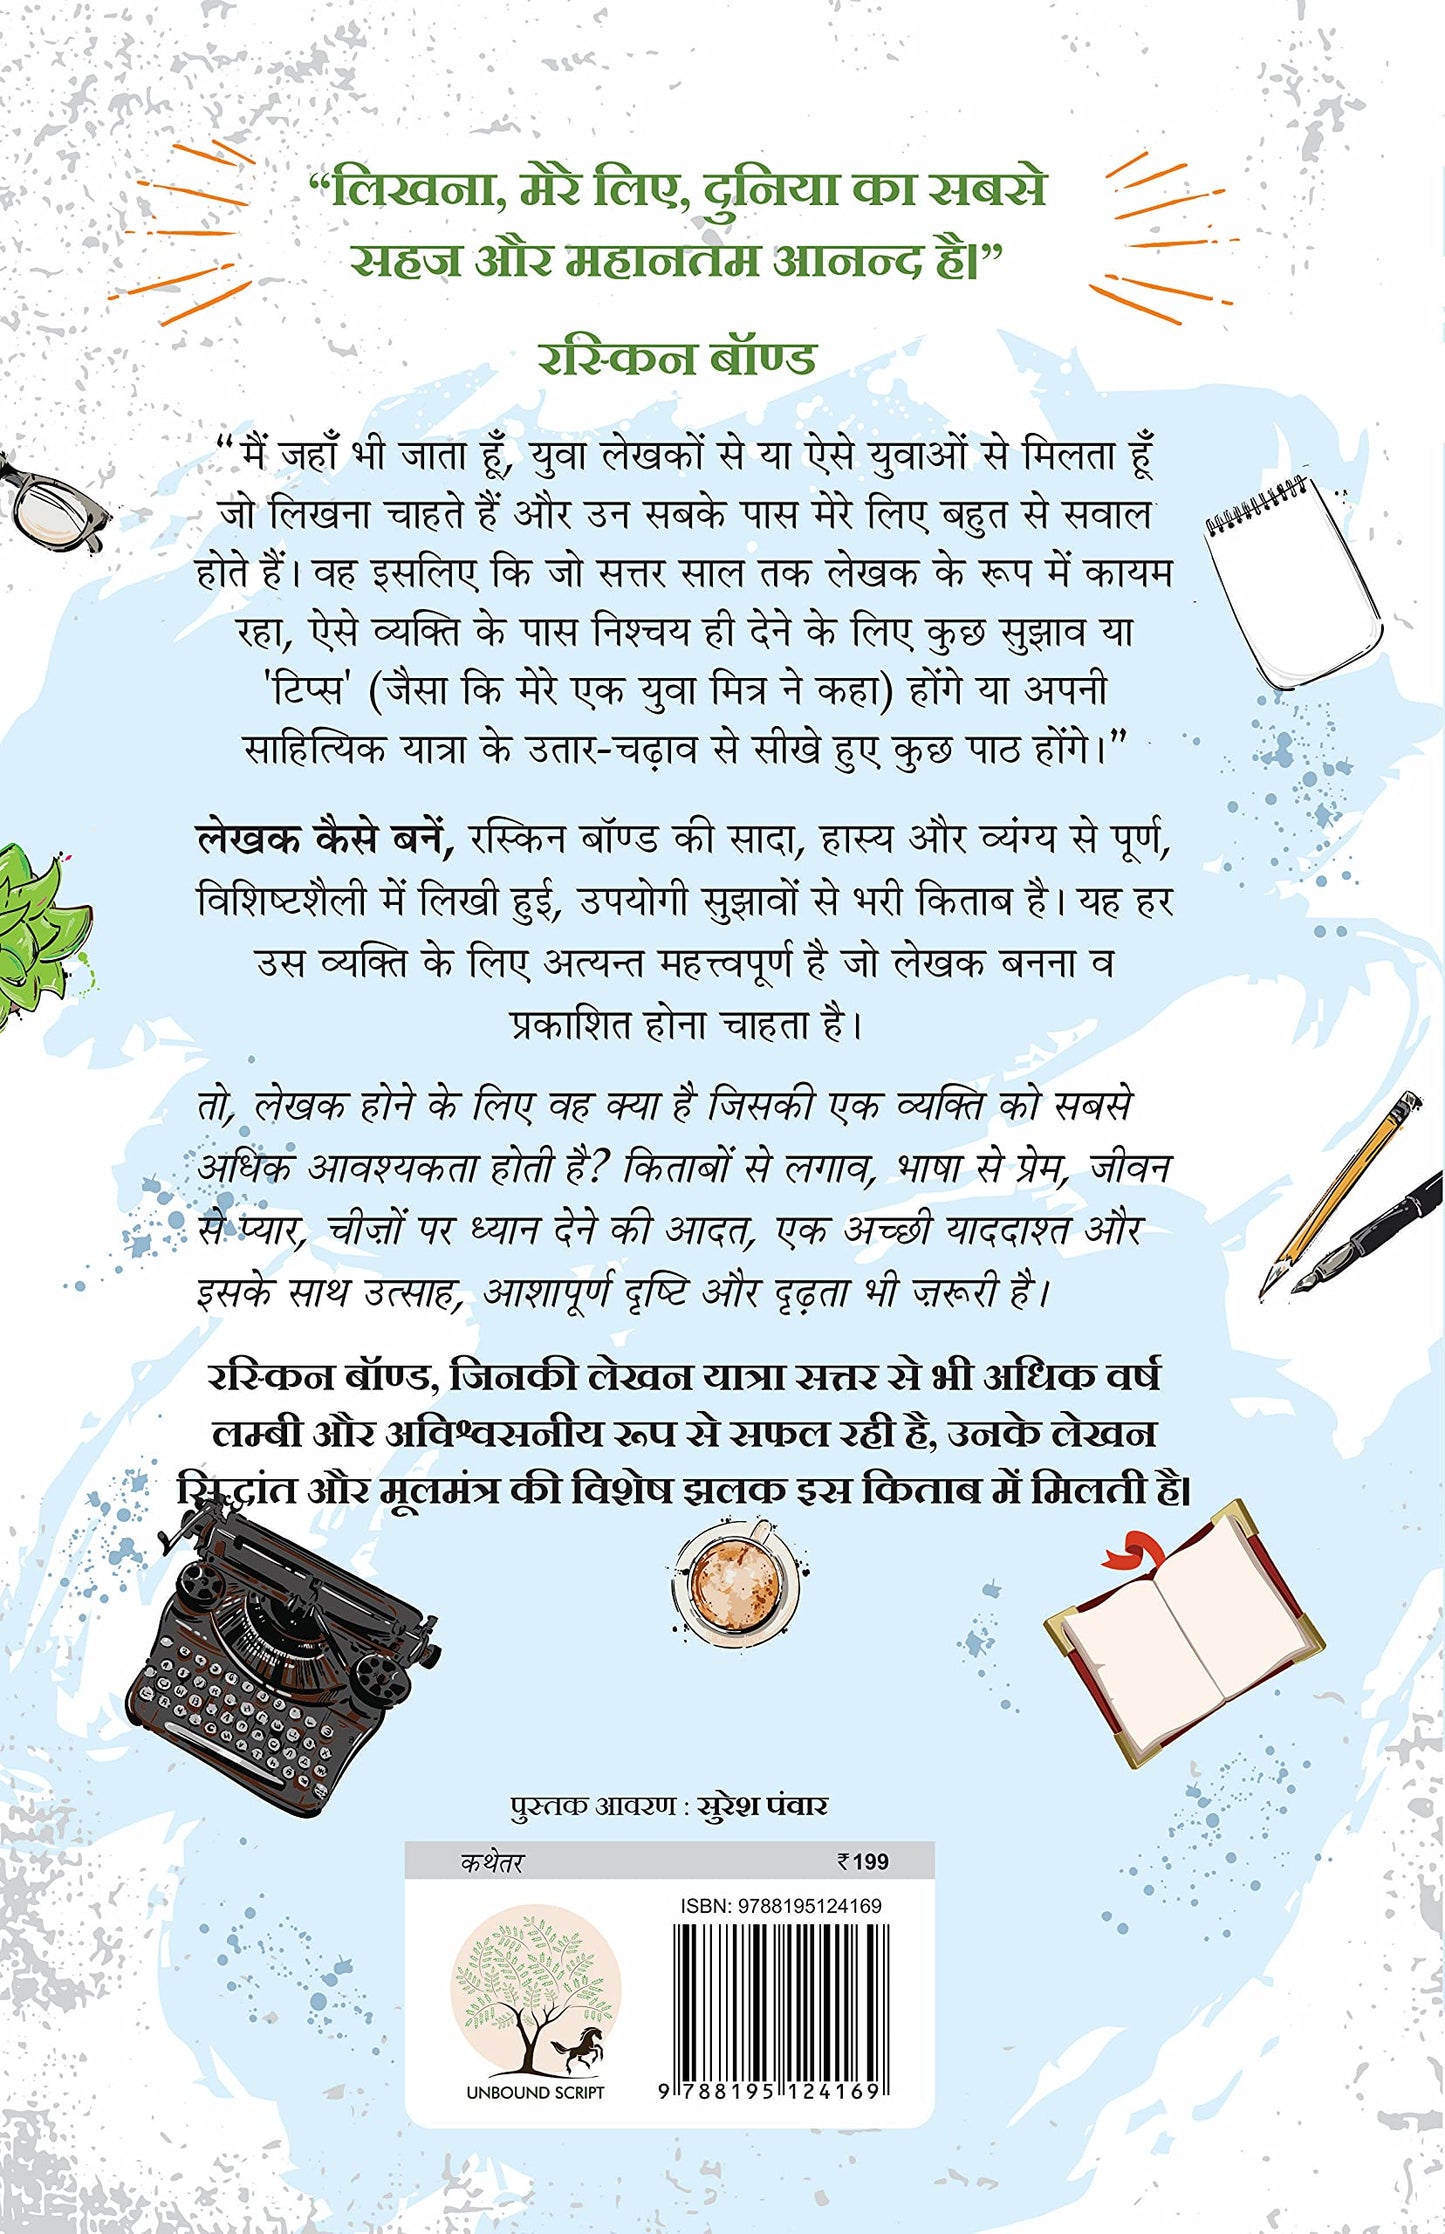 “लिखना, मेरे लिए, दुनिया का सबसे
सहज और महानतम आनन्द है।”
रस्किन बॉण्ड
“मैं जहाँ भी जाता हूँ, युवा लेखकों से या ऐसे युवाओं से मिलता हूँ
जो लिखना चाहते हैं और उन सबके पास मेरे लिए बहुत से सवाल
होते हैं। वह इसलिए कि जो सत्तर साल तक लेखक के रूप में कायम
रहा, ऐसे व्यक्ति के पास निश्चय ही देने के लिए कुछ सुझाव या
'टिप्स' (जैसा कि मेरे एक युवा मित्र ने कहा) होंगे या अपनी
साहित्यिक यात्रा के उतार-चढ़ाव से सीखे हुए कुछ पाठ होंगे।”
लेखक कैसे बनें, रस्किन बॉण्ड की सादा, हास्य और व्यंग्य से पूर्ण,
विशिष्टशैली में लिखी हुई, उपयोगी सुझावों से भरी किताब है। यह हर
उस व्यक्ति के लिए अत्यन्त महत्त्वपूर्ण है जो लेखक बनना व
प्रकाशित होना चाहता है।
तो, लेखक होने के लिए वह क्या है जिसकी एक व्यक्ति को सबसे
अधिक आवश्यकता होती है? किताबों से लगाव, भाषा से प्रेम, जीवन
से प्यार, चीज़ों पर ध्यान देने की आदत, एक अच्छी याददाश्त और
इसके साथ उत्साह, आशापूर्ण दृष्टि और दृढ़ता भी ज़रूरी है।
रस्किन बॉण्ड, जिनकी लेखन यात्रा सत्तर से भी अधिक वर्ष
लम्बी और अविश्वसनीय रूप से सफल रही है, उनके लेखन
सिद्धांत और मूलमंत्र की विशेष झलक इस किताब में मिलती है।
पुस्तक आवरण : सुरेश पंवार
कथेतर ₹199
ISBN: 9788195124169
UNBOUND SCRIPT
9 788195 124169